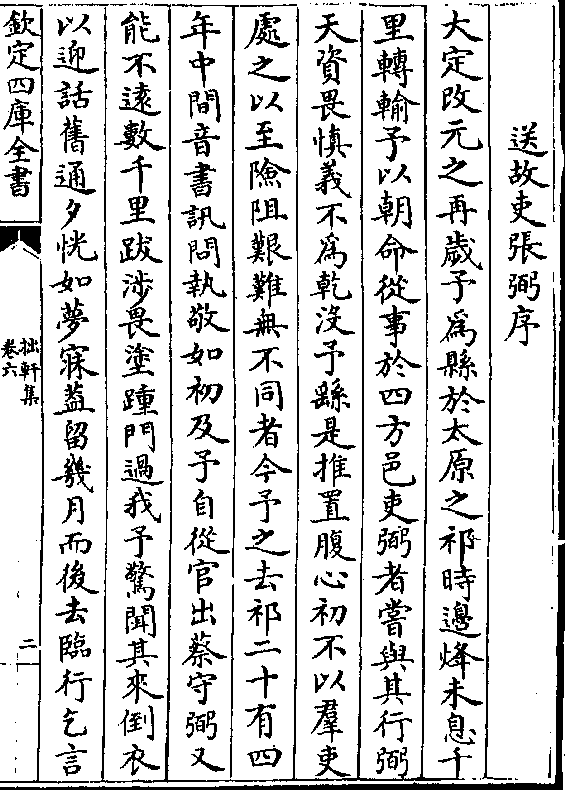 送故吏張弼序
大定改元之再歲予為縣於太原之祁時邊烽未息千
里轉輸予以朝命從事於四方邑吏弼者嘗與其行弼
天資畏慎義不為乾没予繇是推置腹心初不以羣吏
處之以至險阻艱難無不同者今予之去祁二十有四
年中間音書訊問執敬如初及予自從官出蔡守弼又
能不逺數千里跋涉畏塗踵門過我予驚聞其來倒衣
以迎話舊通夕恍如夢寐葢留幾月而後去臨行乞言
欽定四庫全書
拙軒集
卷六
二